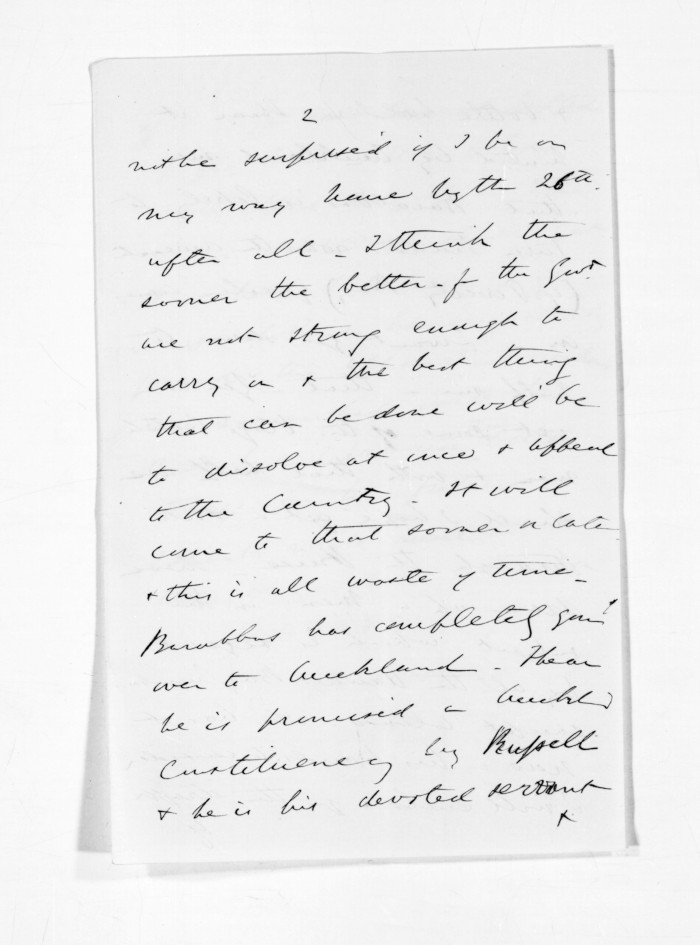 2
not be surprised if I be on
my way home by the 26th.
after all - I think the
sooner the better - for the Govt.
are not strong enough to
carry on & the best thing
that can be done will be
to dissolve at once & appeal
to the Country. It will
come to that sooner or late
& this is all waste of time -
Barabbas has completely gone
over to Auckland - I hear
he is promised a Auckld
Constituency by Russell
& he is his devoted servant
x